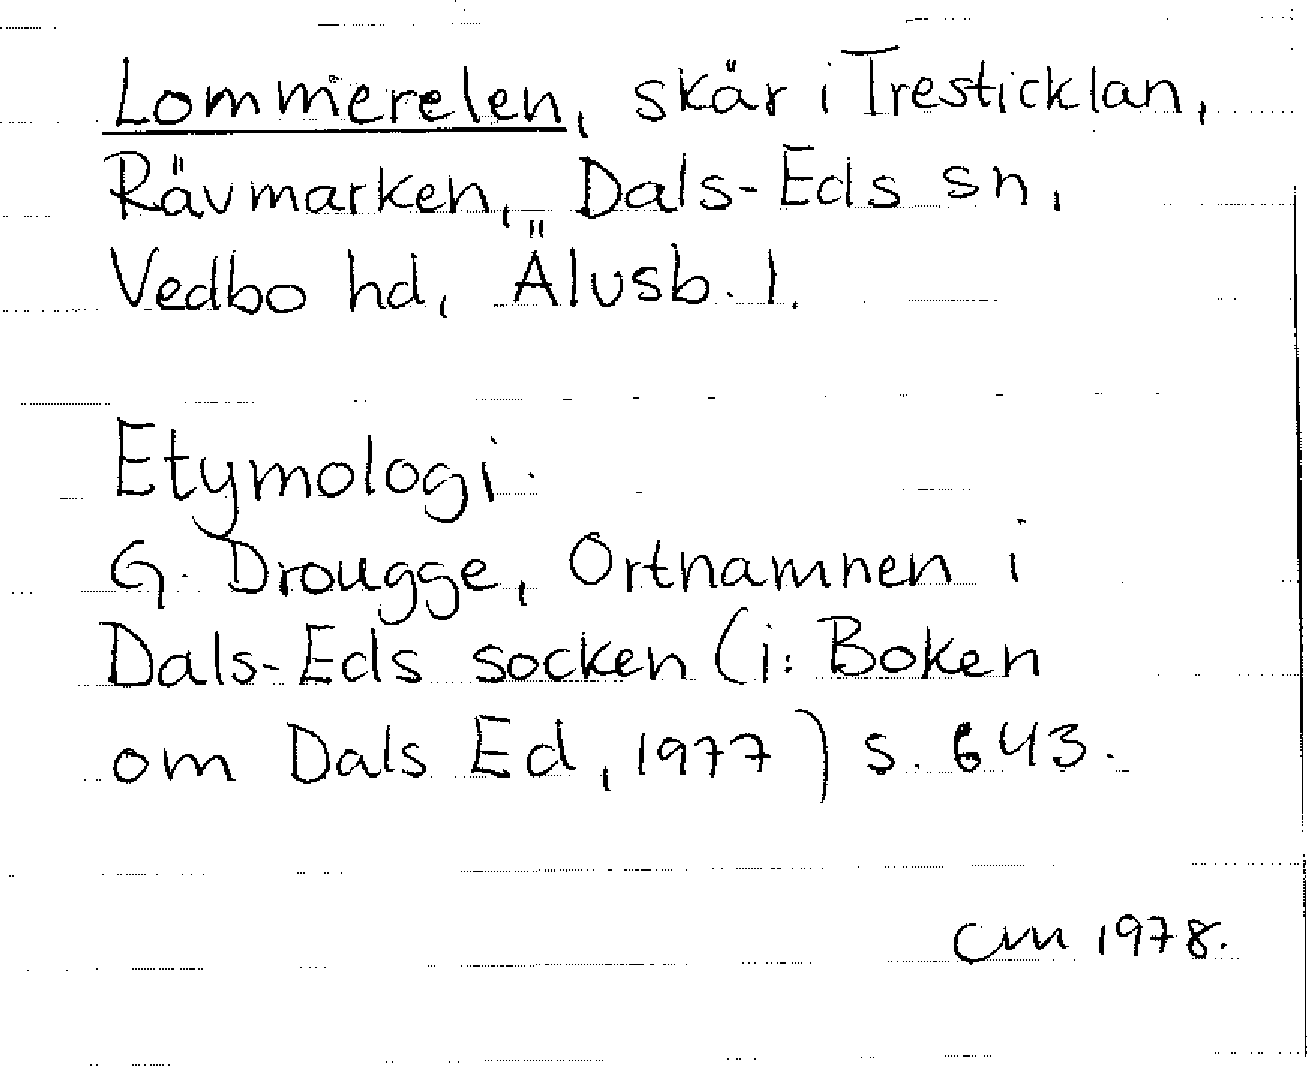 Lommerelen, skär i Tresticklan,
Rävmarken, Dals-Eds sn,
Vedbo hd, Älvsb. l.
Etymologi:
G. Drougge, Ortnamnen i
Dals-Eds socken (i: Boken
om Dals Ed, 1977) s. 643.
CM 1978.